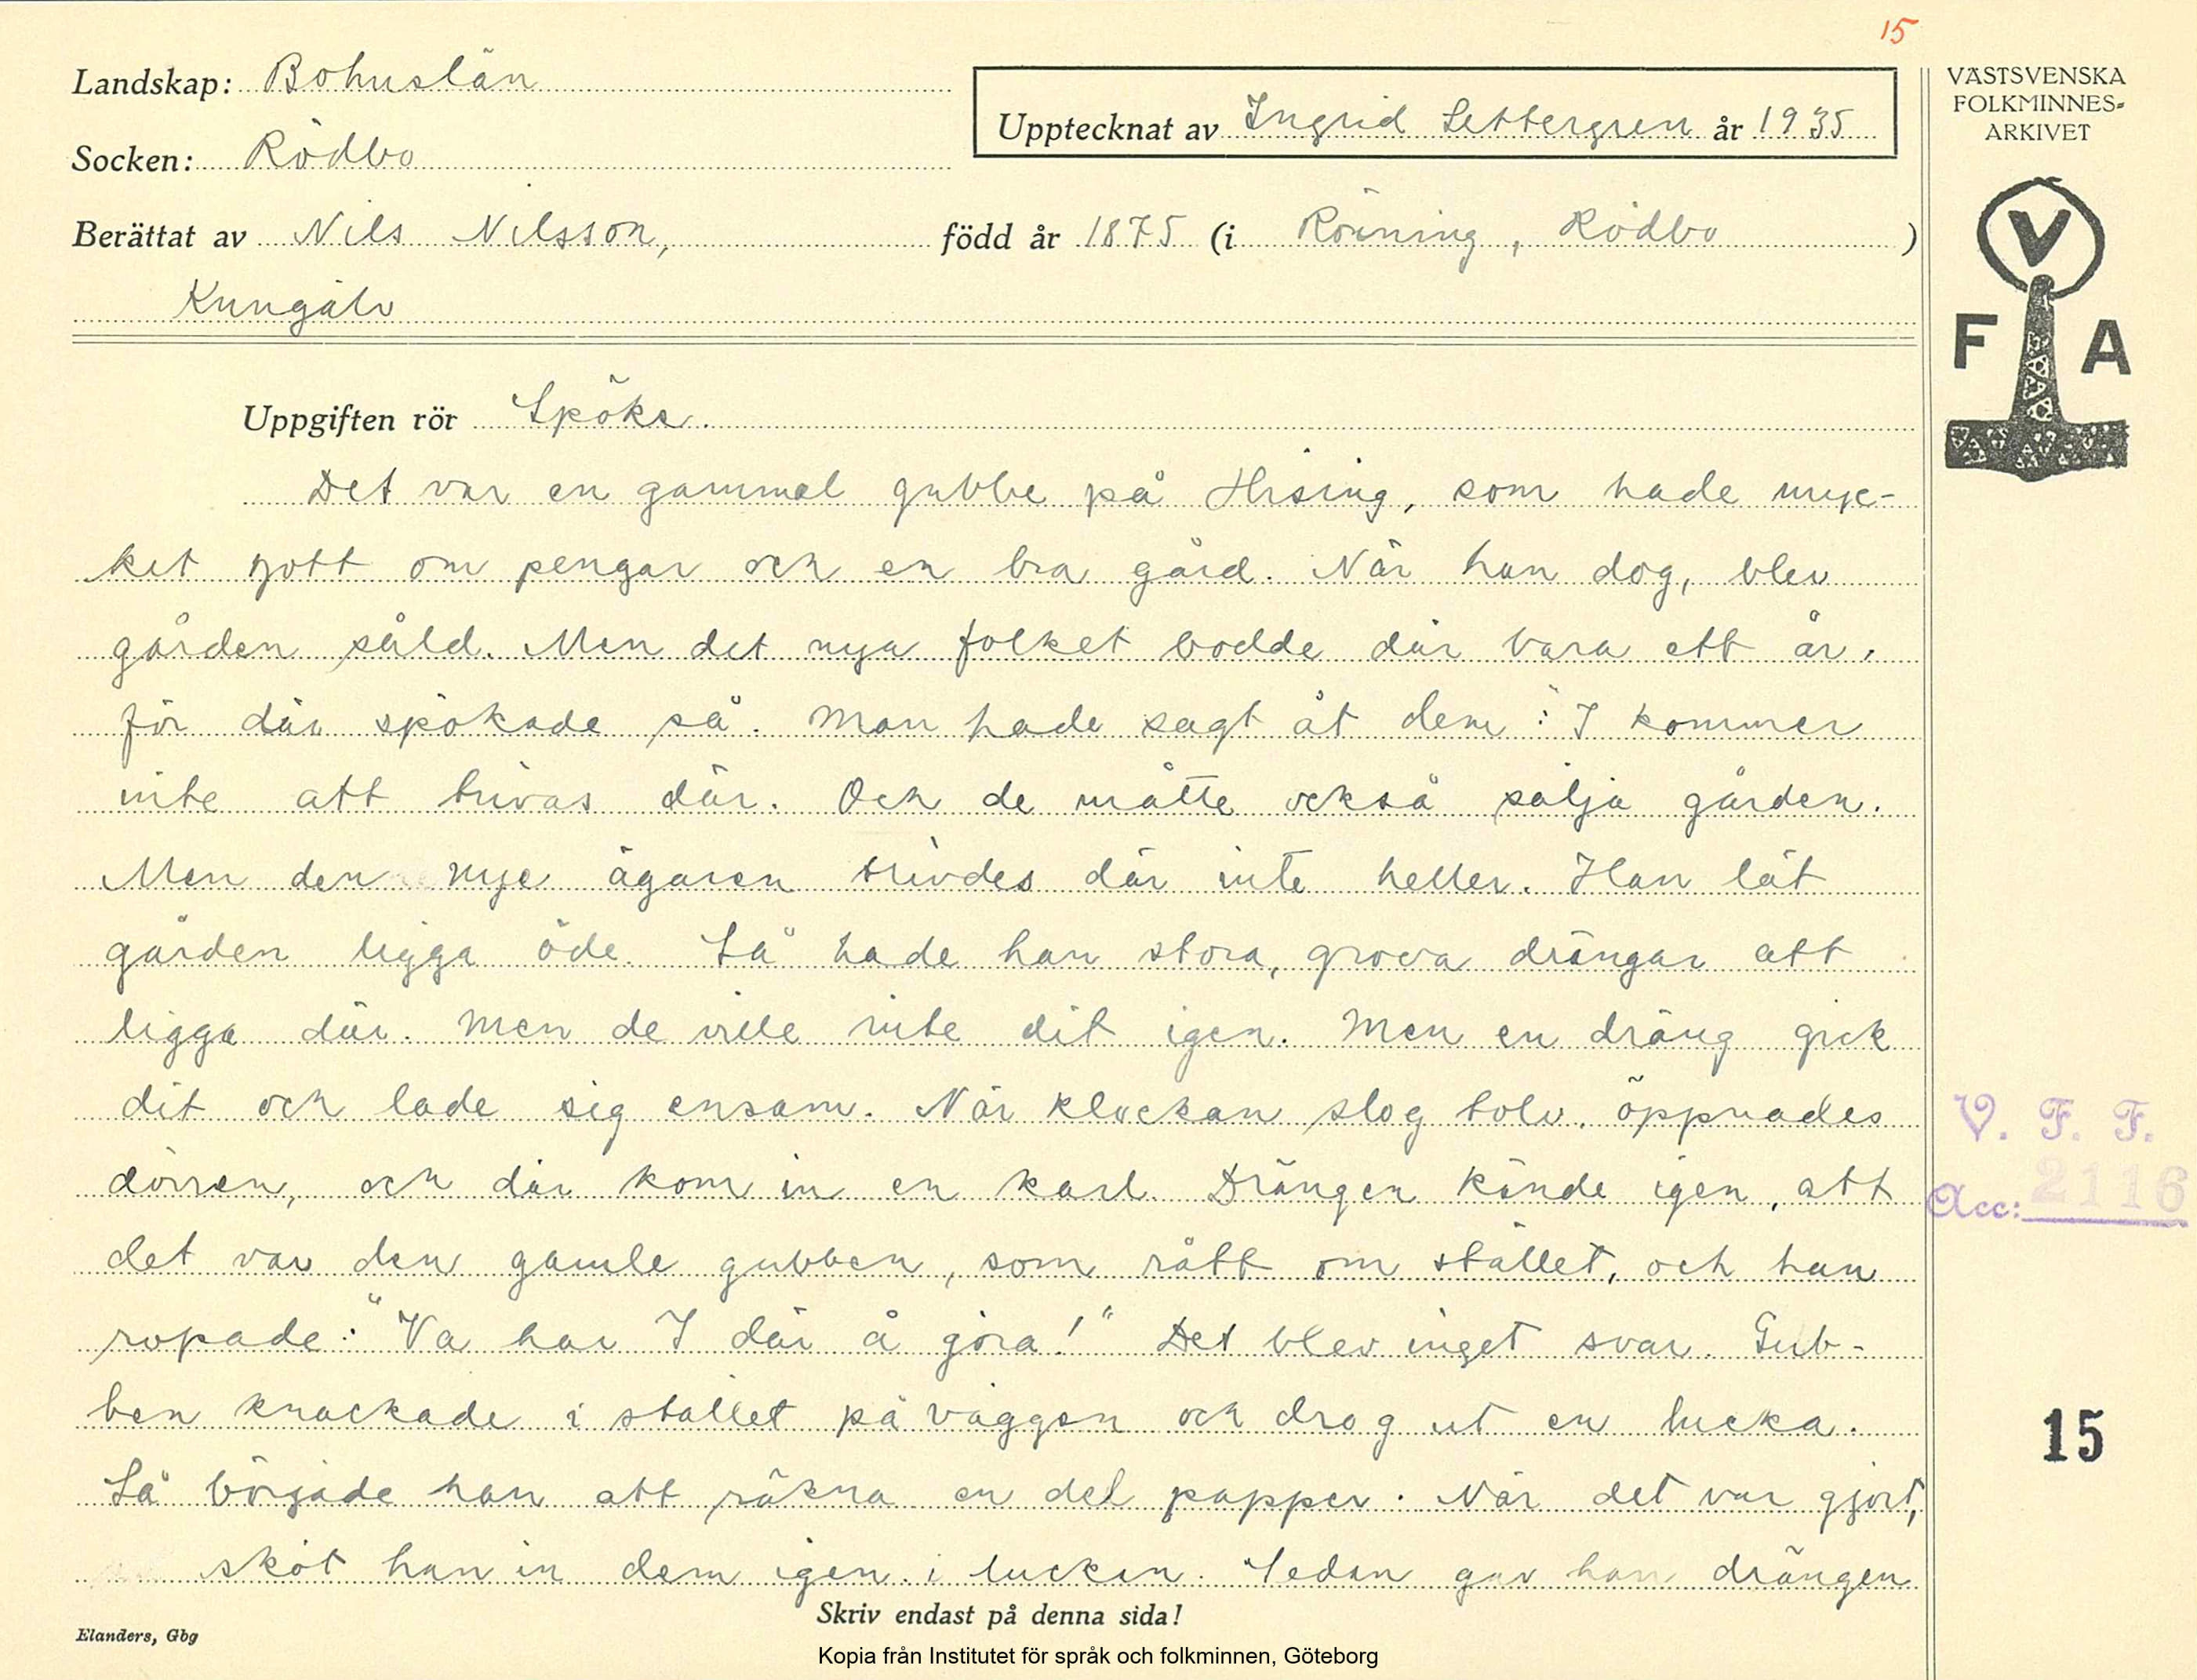 15
Landskap: Bohuslän
Socken: Rödbo
Upptecknat av Ingrid Settergren år 1935
Berättat av Nils Nilsson, född år 1875 (i Röining, Rödbo )
Kungälv
VÄSTSVENSKA
FOLKMINNES-
ARKIVET
V
F A
Uppgiften rör Spöke.
Det var en gammal gubbe på Hising, som hade myc-
ket gott om pengar och en bra gård. När han dog, blev
gården såld. Men det nya folket bodde där bara ett år,
för där spökade så. Man hade sagt åt dem: "I kommer
inte att trivas där. Och de måtte också sälja gården.
Men den nye ägaren trivdes där inte heller. Han lät
gården ligga öde. Så hade han stora, grova drängar att
ligga där. Men de ville inte dit igen. Men en dräng gick
dit och lade sig ensam. När klockan slog tolv, öppnades
dörren, och där kom in en karl. Drängen kände igen, att
det var den gamle gubben, som rått om stället, och han
ropade: "Va har I där å göra!" Det blev inget svar. Gub-
ben knackade i stället på väggen och drog ut en lucka.
Så började han att räkna en del papper. När det var gjort,
sköt han in dem igen i luckan. Sedan gav han drängen
V. F. F.
Acc: 2116
15
Skriv endast på denna sida!
Elanders, Gbg
Kopia från Institutet för språk och folkminnen, Göteborg